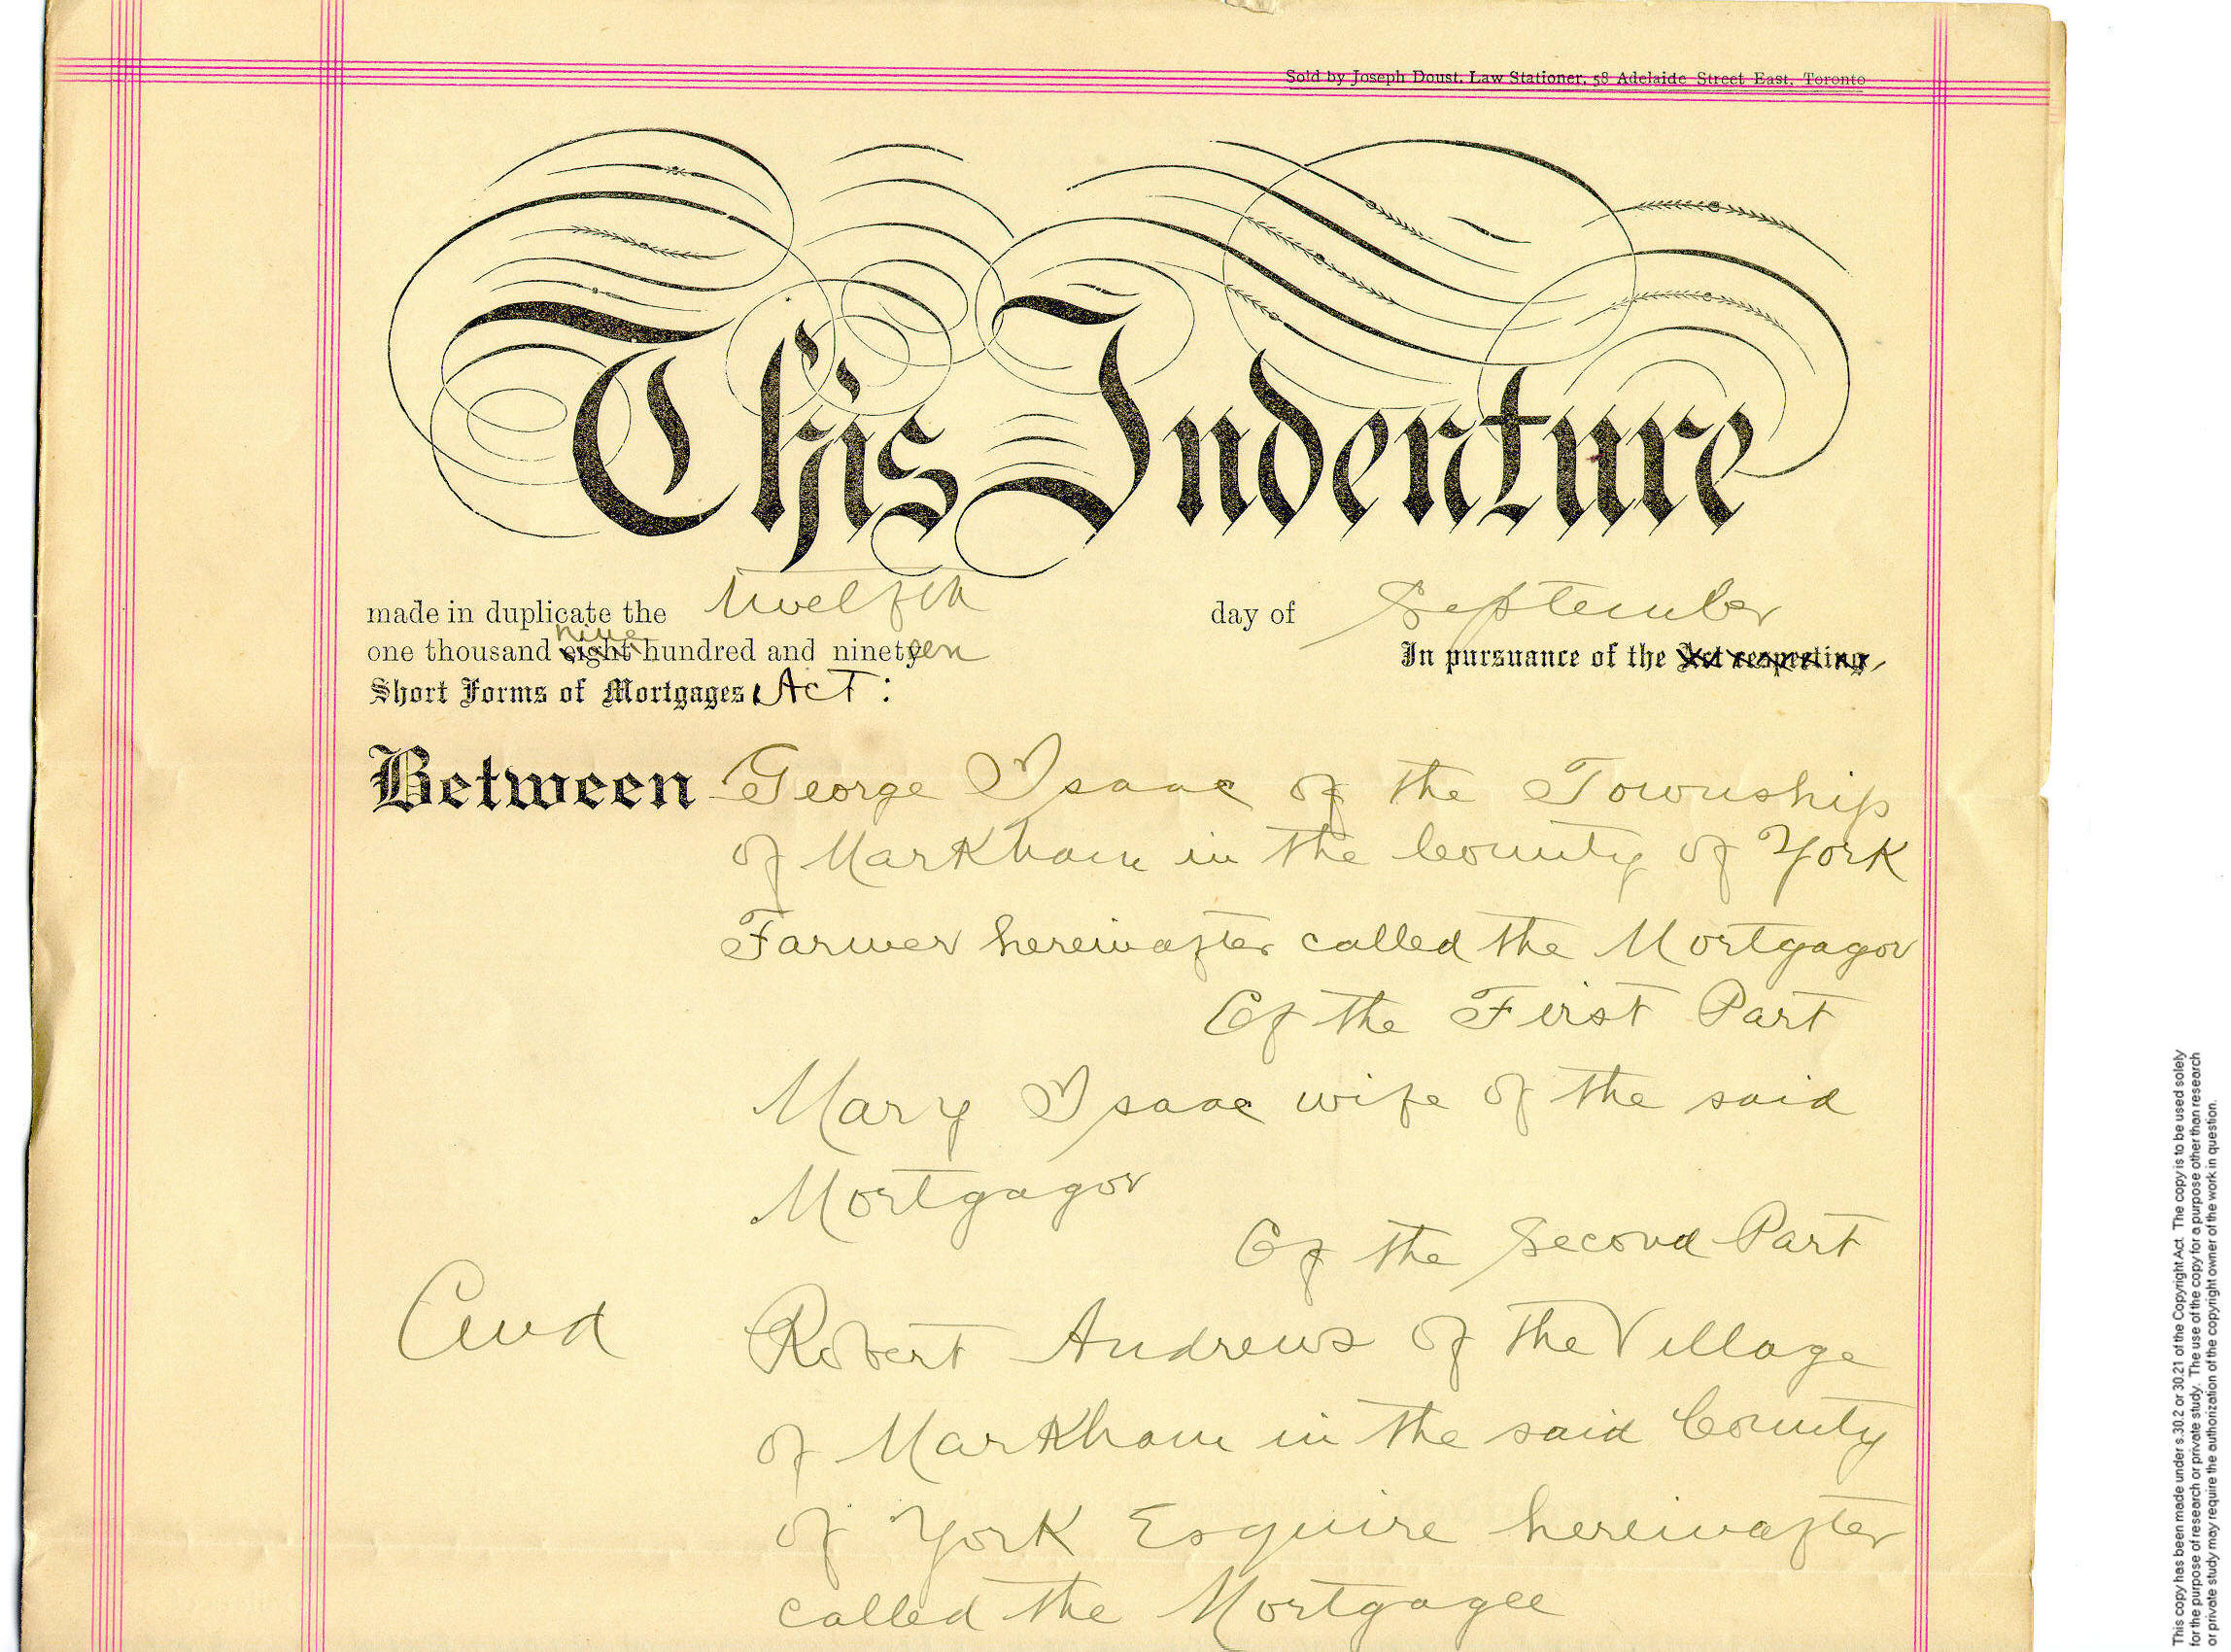 Sold by Joseph Doust, Law Stationer, 58 Adelaide Street East, Toronto
This Indenture
made in duplicate the twelfth day of September
nine
one thousand eight hundred and ninetyeen In pursuance of the Act respecting,
Short Forms of Mortgages, Act :
Between George Isaac of the Township
of Markham in the County of York
Farmer hereinafter called the Mortgagor
Of the First Part
Mary Isaac wife of the said
Mortgagor
Of the Second Part
And Robert Andrews of the Village
of Markham in the said County
of York Esquire hereinafter
called the Mortgagee
This copy has been made under s.30.2 or 30.21 of the Copyright Act. The copy is to be used solely
for the purpose of research or private study. The use of the copy for a purpose other than research
or private study may require the authorization of the copyright owner of the work in question.